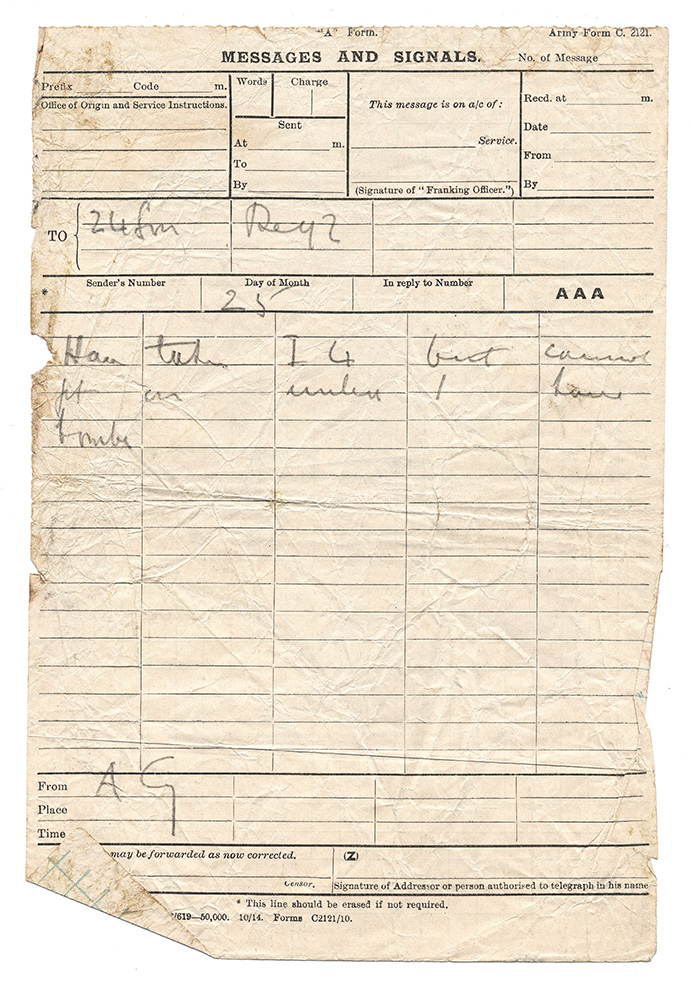 "A" Form. Army Form C. 2121.
MESSAGES AND SIGNALS. No. of Message
Prefix Code m. Words Charge
This message is on a/c of : Recd. at m.
Office of Origin and Service Instructions.
Sent Date
At m. Service.
To From
By (Signature of "Franking Officer.") By
TO
Sender's Number Day of Month In reply to Number AAA
* 25
Have taken I 4 but cannot
get on unless I have
bombs
From A G
Place
Time
may be forwarded as now corrected. (Z)
Censor. Signature of Addressor or person authorised to telegraph in his name
* This line should be erased if not required.
/619—50,000. 10/14. Forms C2121/10.